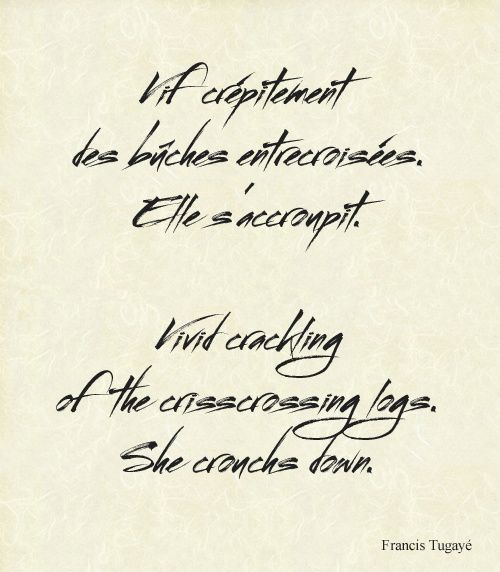 Vif crépitement
des bûches entrecroisées.
Elle s'accroupit.
Vivid crackling
of the crisscrossing logs.
She crouchs down.
Francis Tugayé